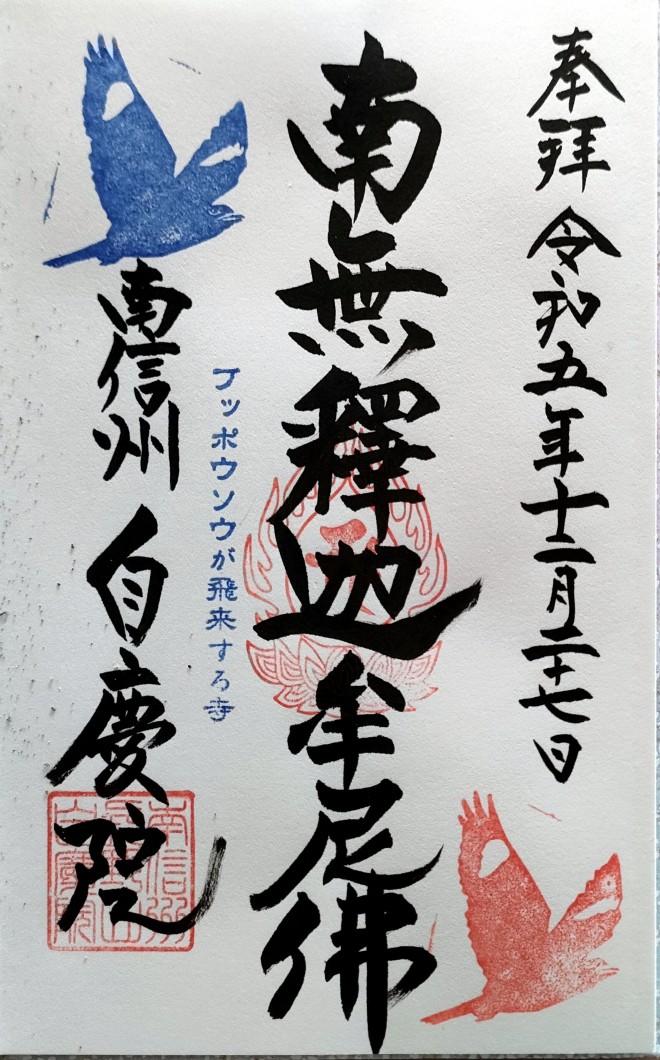 奉拝 令和五年十二月二十七日
南無釋迦牟尼佛
ブッポウソウが飛来する寺
南信州 自慶院